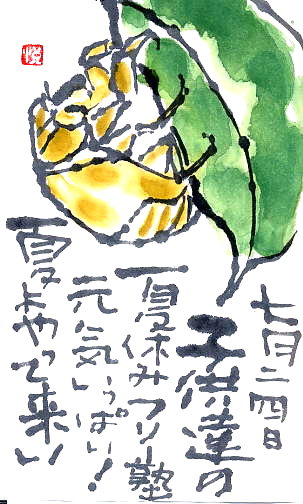 七月二四日
子供達の
夏休みフリー塾
元気いっぱい!
夏よやって来い
悦